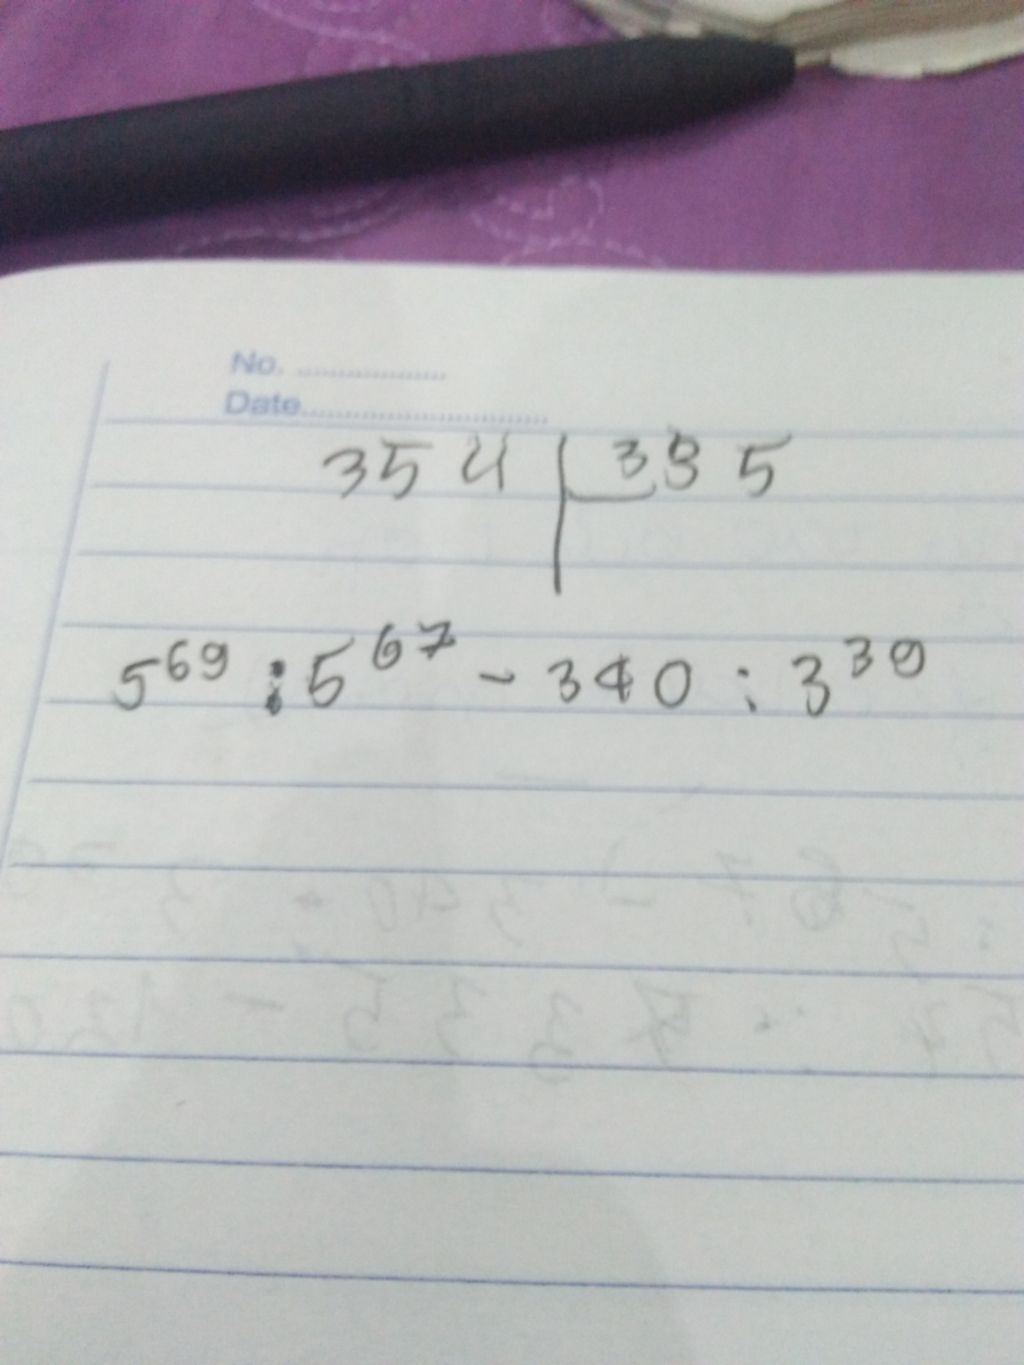 No. ..................
Date..............................
354 | 335
5⁶⁹ : 5⁶⁷ - 340 : 3³⁹